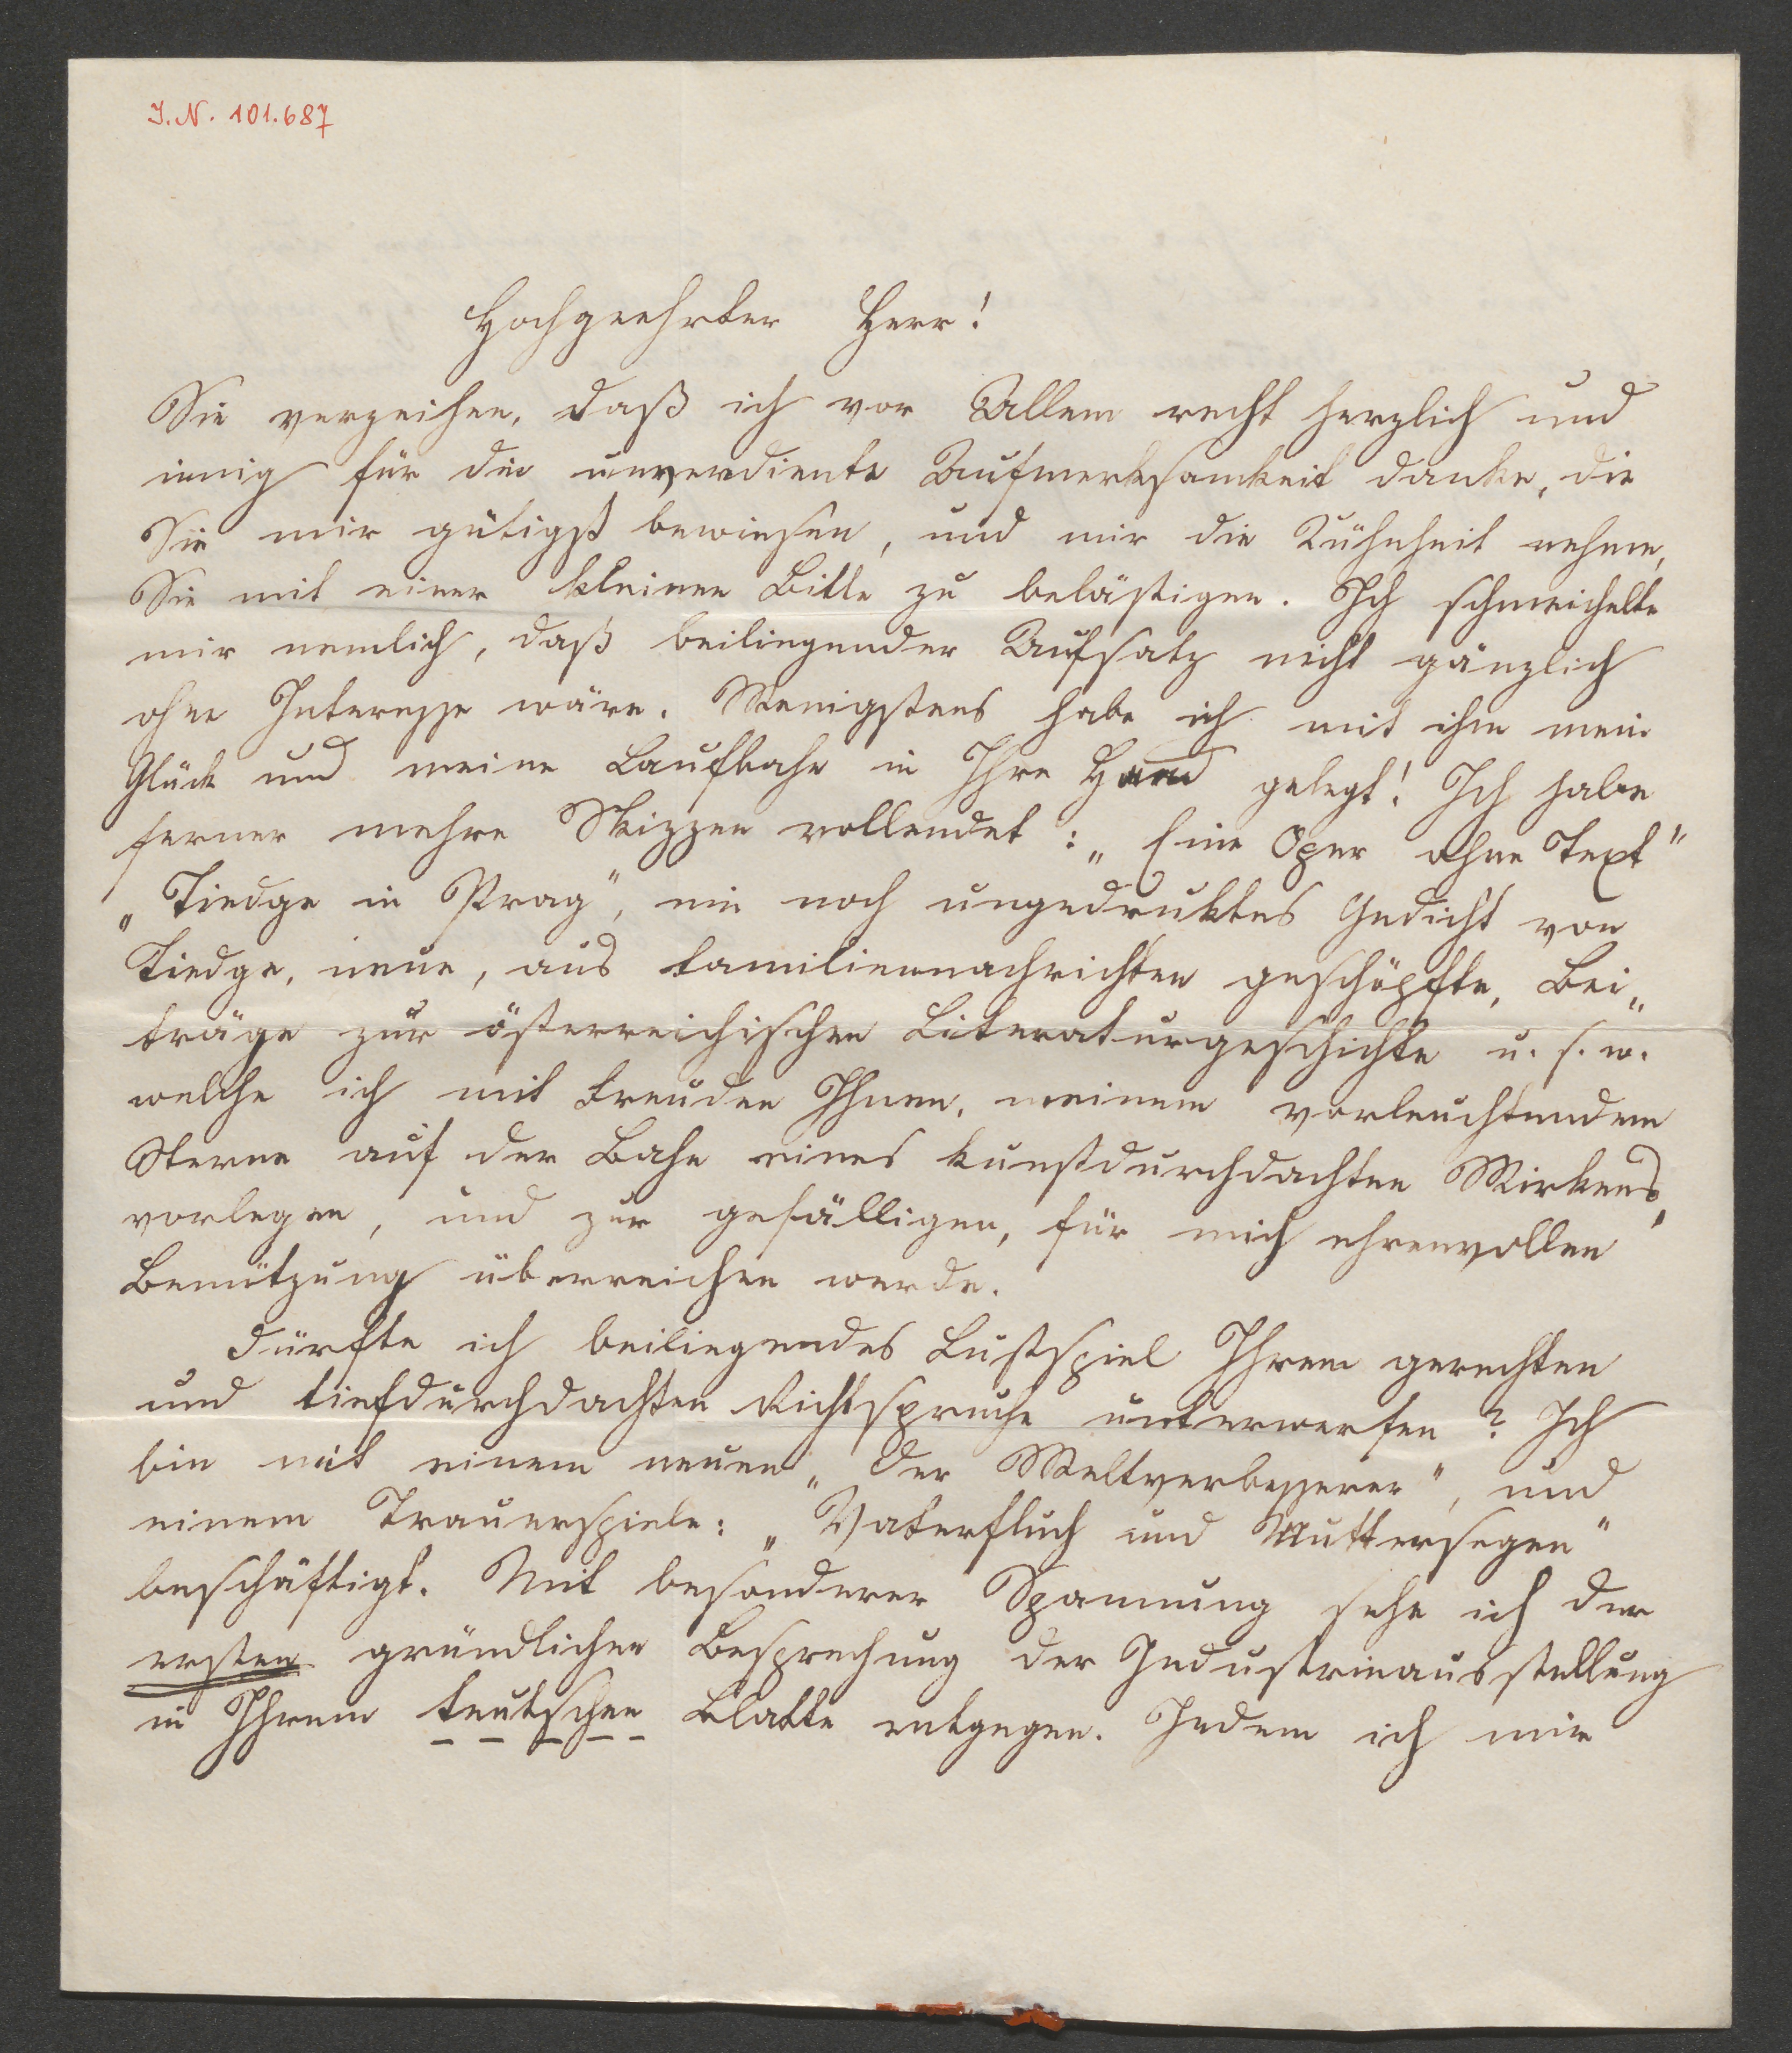 I.N. 101.687
Hochgeehrter Herr!
Sie verzeihen, daß ich vor Allem recht herzlich und
innig für die unverdiente Aufmerksamkeit danke, die
Sie mir gütigst bewiesen, und mir die Kühnheit nehme,
Sie mit einer kleinen Bitte zu belästigen. Ich schmeichelte
mir nemlich, daß beiliegender Aufsatz nicht gänzlich
ohne Interesse wäre. Wenigstens habe ich mit ihm mein
Glück und meine Laufbahn in Ihre Hand gelegt! Ich habe
ferner mehre Skizzen vollendet: „Eine Oper ohne Text"
„Tiedge in Prag", ein noch ungedruktes Gedicht von
Tiedge, neue, aus Familiennachrichten geschöpfte, Bei„
träge zur österreichischen Literaturgeschichte u. s. w.
welche ich mit Freuden Ihnen, meinem vorleuchtendem
Sterne auf der Bahn eines kunstdurchdachten Wirkens,
vorlegen, und zur gefälligen, für mich ehrenvollen
Benützung überreichen werde.
Dürfte ich beiliegendes Lustspiel Ihrem gerechten
und tiefdurchdachten Richtspruche unterwerfen? Ich
bin mit einem neuen „Der Weltverbesserer", und
einem Trauerspiele: „Vaterfluch und Muttersegen"
beschäftigt. Mit besonderer Spannung sehe ich der
ersten gründlichen Besprechung der Industrieausstellung
in Ihrem teutschen Blatte entgegen. Indem ich mir